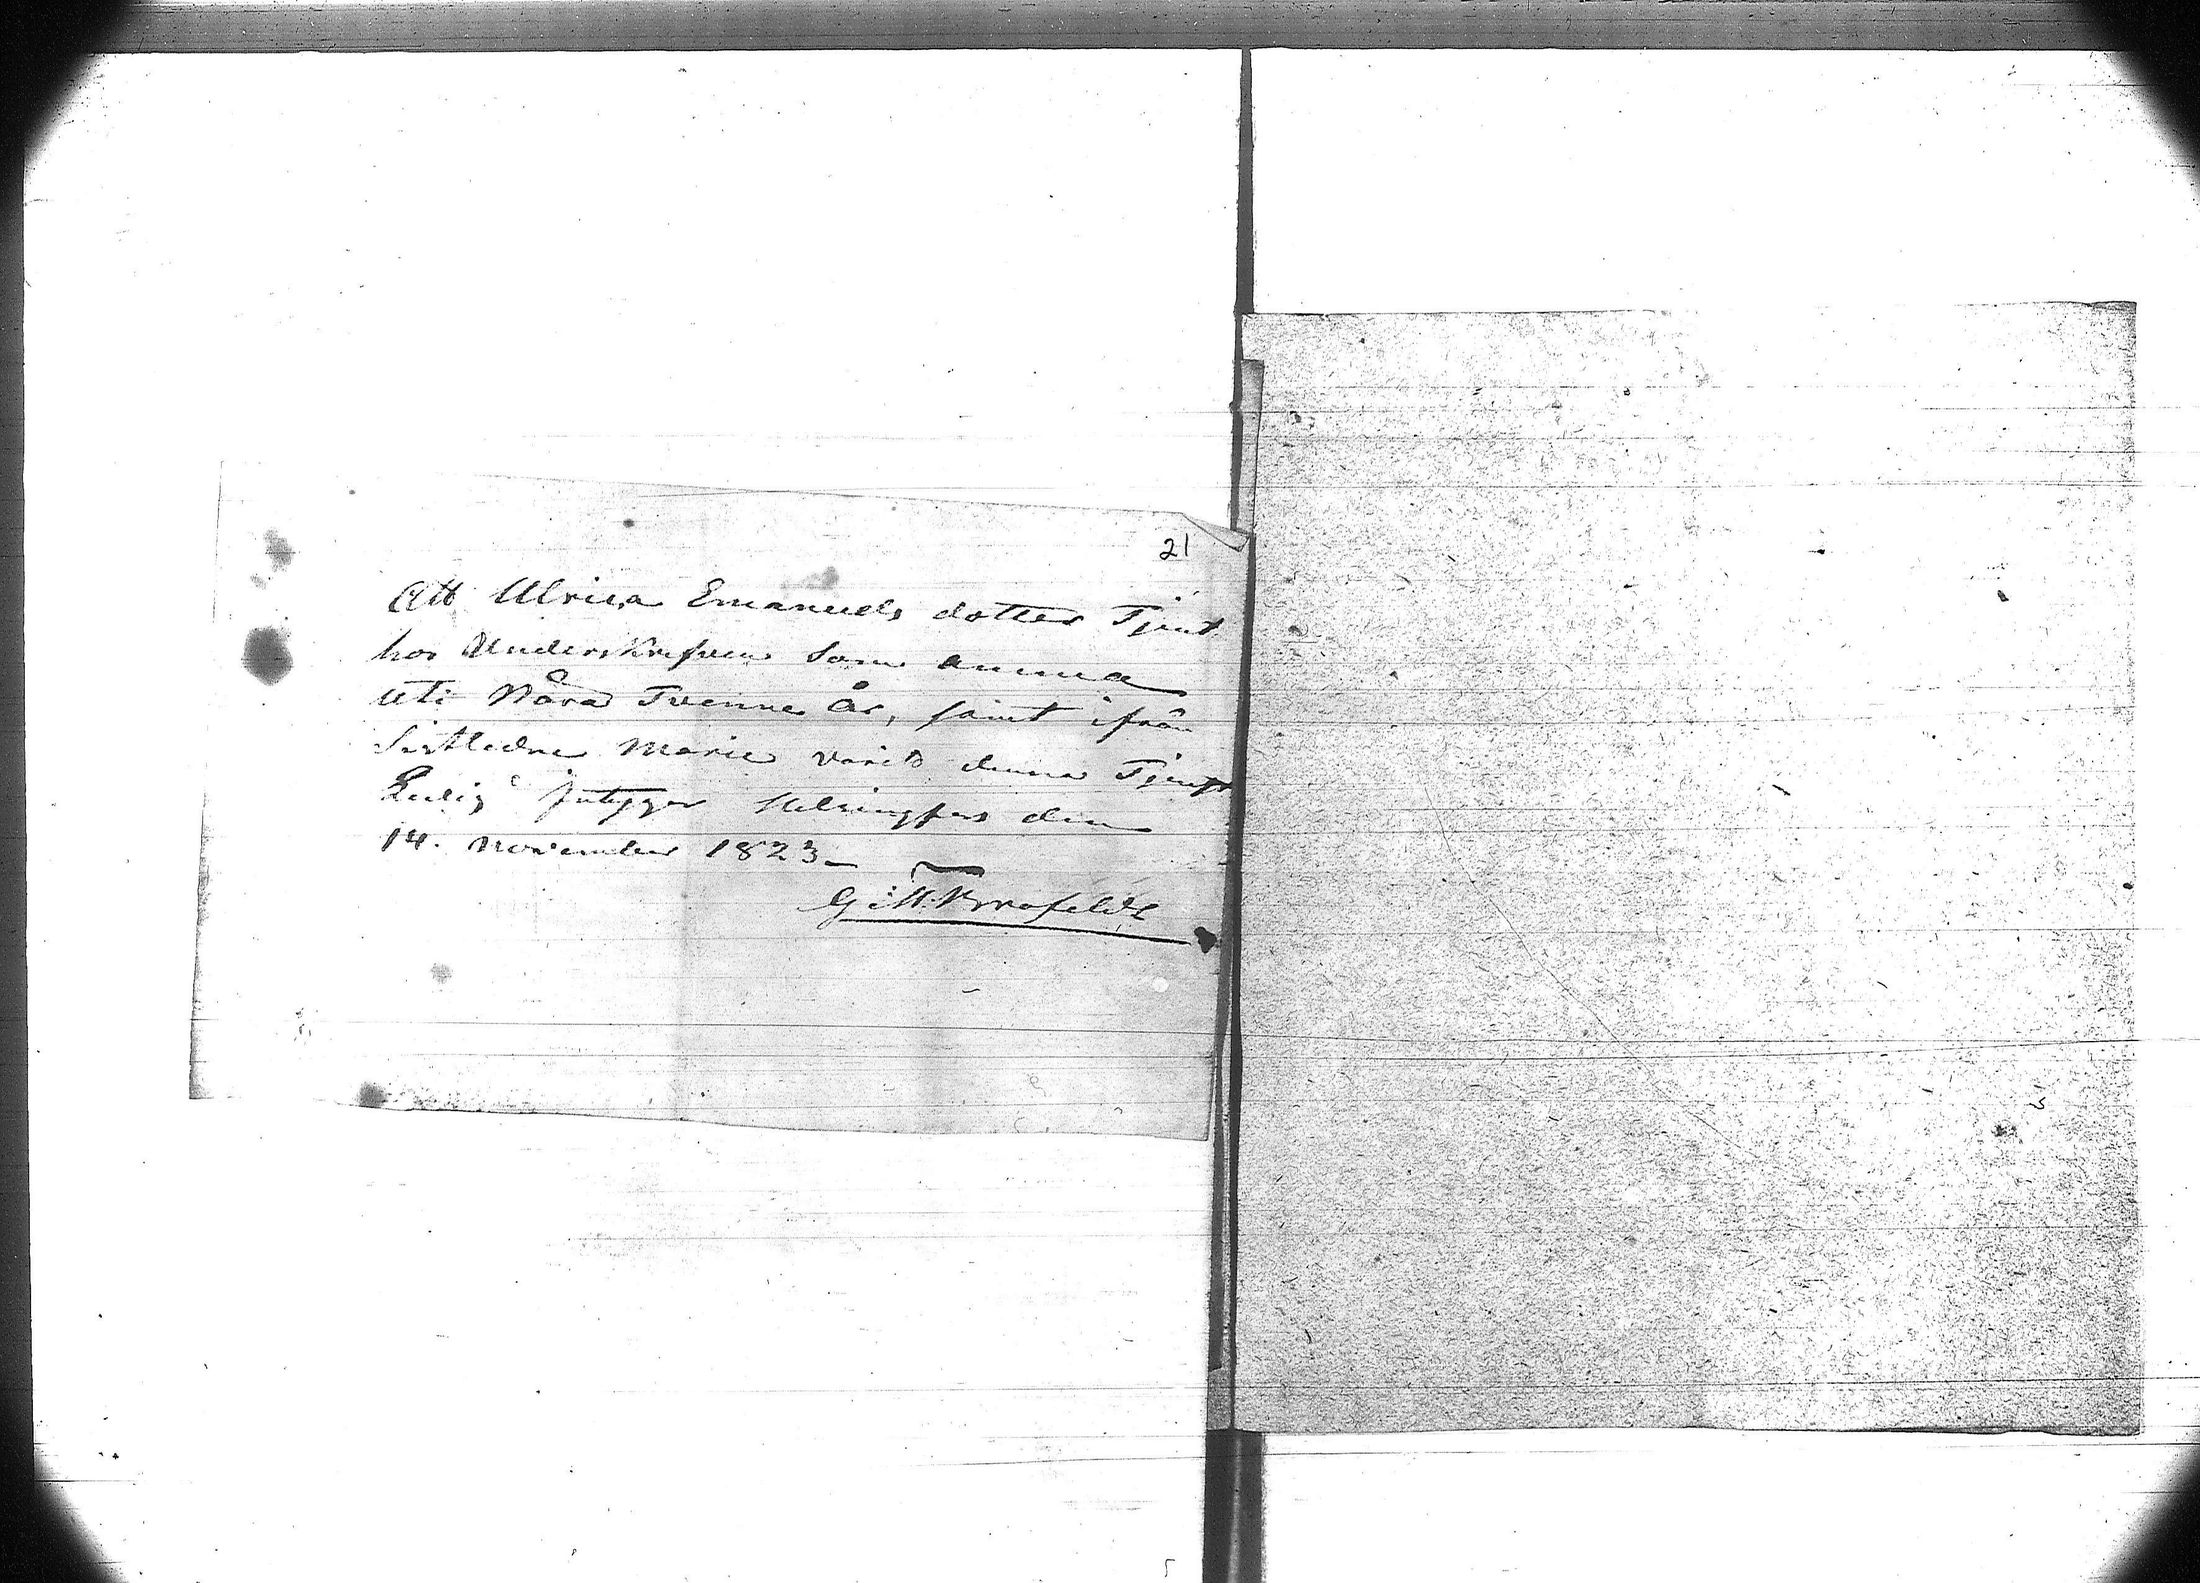 21
Att Ulrica Emanuels dotter Tjent
hos Underskrefven som amma
uti Nära Tvenne År, samt ifrån
Sistledne Marie varit denna Tjenst
Ledig intygar Helsingfors den
14. November 1823
G: H: